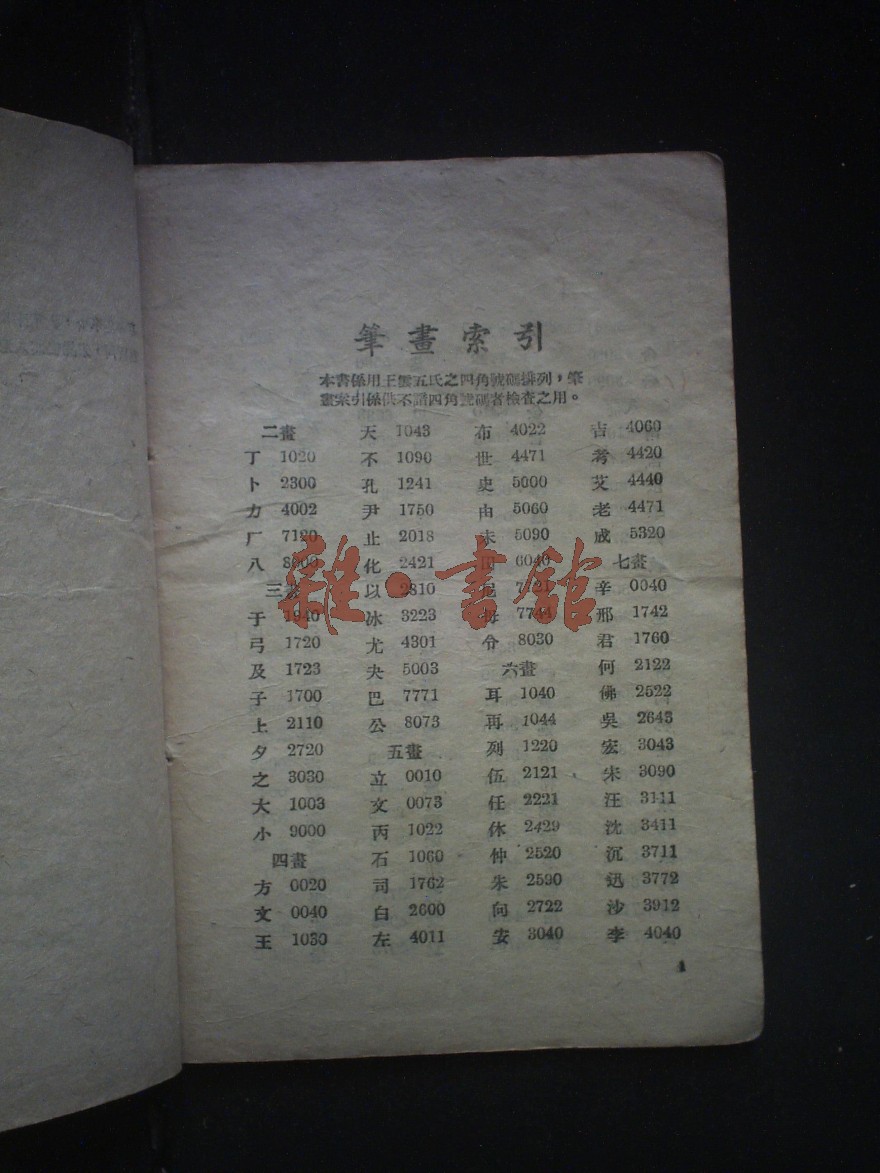 筆畫索引
本書係用王雲五氏之四角號碼排列，筆
畫索引係供不諳四角號碼者檢查之用。
二畫
丁 1020
卜 2300
力 4002
厂 7120
八 8000
三畫
于 1040
弓 1720
及 1723
子 1700
上 2110
夕 2720
之 3030
大 1003
小 9000
四畫
方 0020
文 0040
王 1030
天 1043
不 1090
孔 1241
尹 1750
止 2018
化 2421
以 2810
冰 3223
尤 4301
夬 5003
巴 7771
公 8073
五畫
立 0010
玄 0073
丙 1022
石 1060
司 1762
白 2600
左 4011
布 4022
世 4471
史 5000
由 5060
未 5090
田 6040
尼 7721
7744
兮 8030
六畫
耳 1040
再 1044
列 1220
伍 2121
任 2221
休 2429
仲 2520
朱 2590
向 2722
安 3040
吉 4060
考 4420
艾 4440
老 4471
成 5320
七畫
辛 0040
邢 1742
君 1760
何 2122
佛 2522
吳 2643
宏 3043
宋 3090
汪 3111
沈 3411
沉 3711
迅 3772
沙 3912
李 4040
1
雜·書館